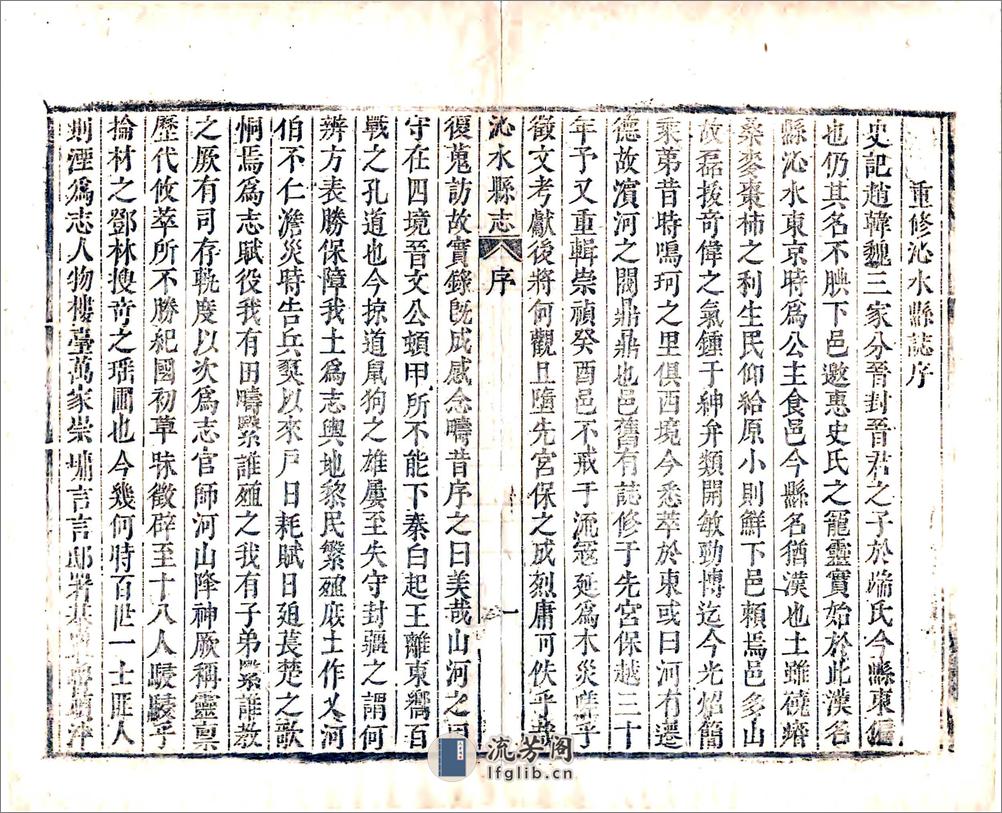 重修沁水縣誌序
史記趙韓魏三家分晉封晉君之子於端氏今縣東
也仍其名不腆下邑邀惠史氏之寵靈實始於此漢名
縣沁水東京時為公主食邑今縣名猶漢也土雖磽瘠
桑麥棗柿之利生民仰給原小則鮮下邑賴焉邑多山
故磊拔奇偉之氣鍾于紳弁類開敏勁博迄今光焰簡
乘弟昔時鳴珂之里俱西境今悉萃於東或曰河有遷
德故濱河之閥鼎鼎也邑舊有誌修于先宮保越三十
年予又重輯崇禎癸酉邑不戒于流寇延為木災
徵文考獻後將何觀且墮先宮保之成烈庸可佚乎
沁水縣志 序 一
復蒐訪故實錄既成感念疇昔序之曰美哉山河之固
守在四境晉文公頓甲所不能下秦白起王離東嚮百
戰之孔道也今掠道鼠狗之雄屢至失守封疆之謂何
辨方表勝保障我土為志輿地黎民繁殖底土作乂河
伯不仁澹災時告兵燹以來戶日耗賦日廹萇楚之歌
恫焉為志賦役我有田疇繄誰殖之我有子弟繄誰教
之厥有司存軌度以次為志官師河山降神厥稱靈稟
歷代攸萃所不勝紀國初草昧徵辟至十八人駸駸乎
掄材之鄧林搜奇之瑤圃也今幾何時百世一士匪人
則湮為志人物樓臺萬家崇墉言言邸署甚
流芳閣
lfglib.cn